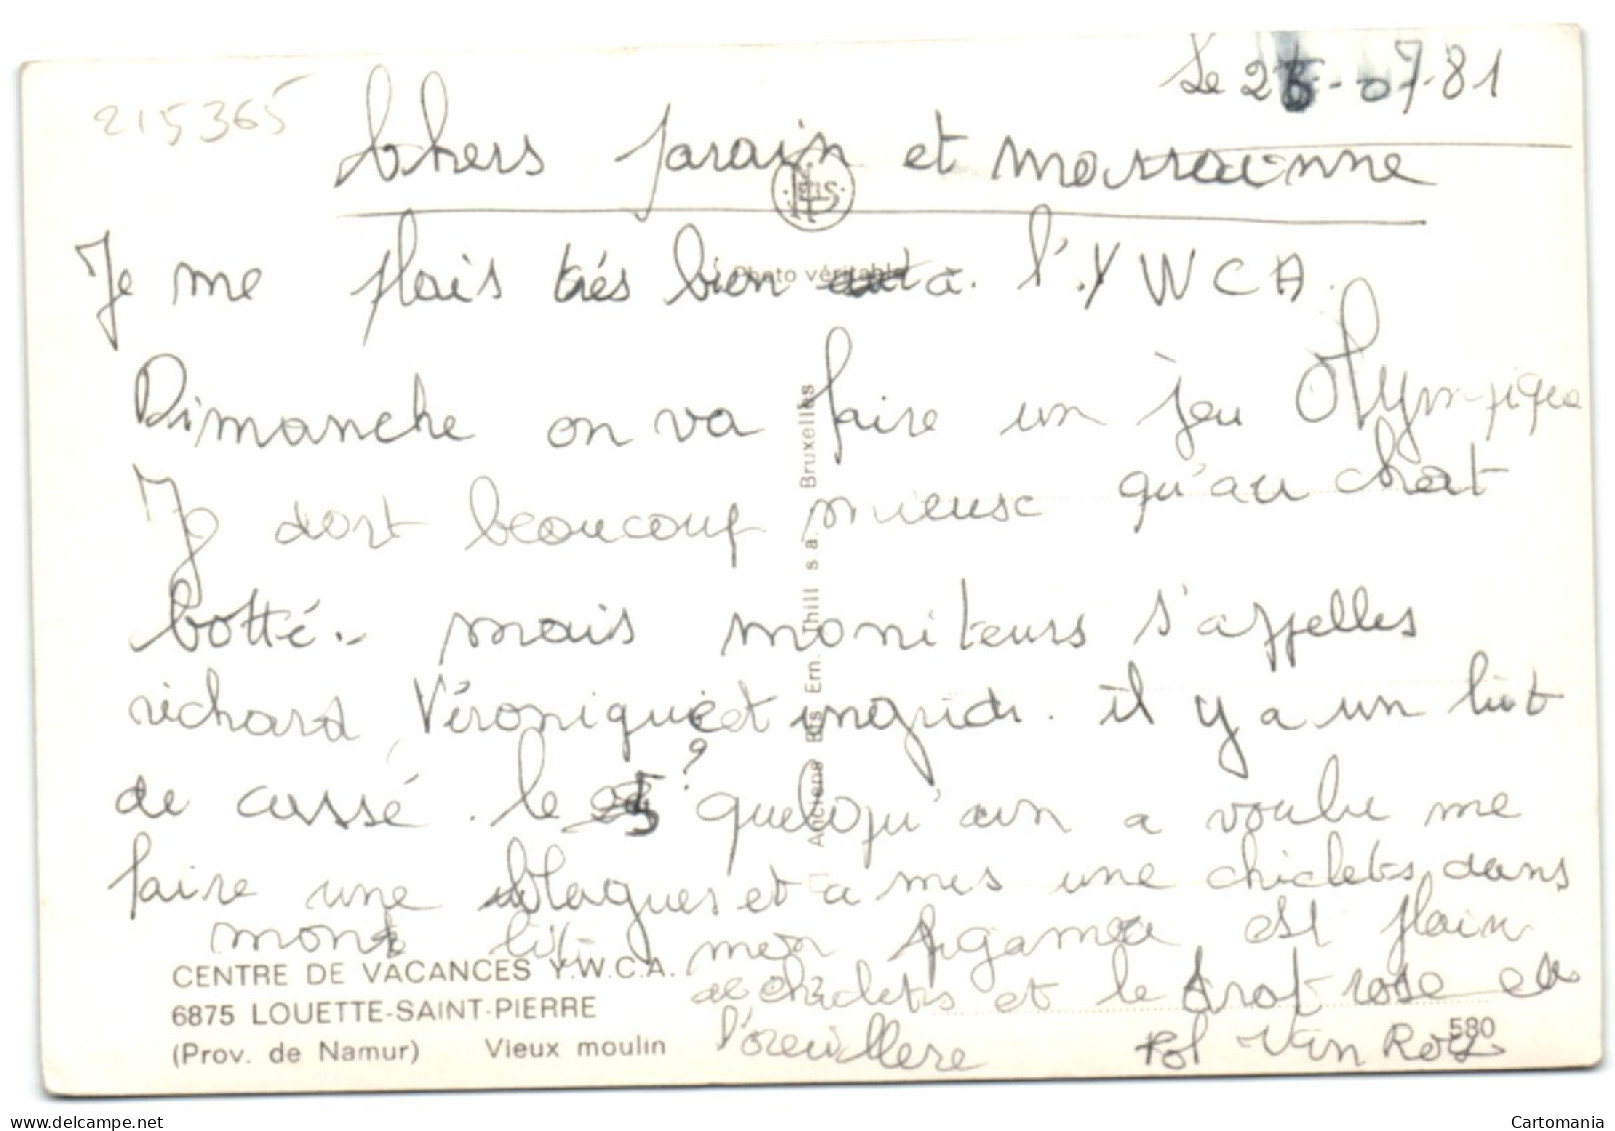 215365
Le 25-07-81
Chers parain et marrainne
NELS
Je me plais trés bien à l'YWCA.
Photo véritable
Dimanche on va faire un jeu Olympique
Je dort beaucoup mieusc qu'au chat
botté.- mais moniteurs s'appelles
richard, Véronique et ingrid. il y a un lit
de cassé. le 5? quelqu'un a voulu me
faire une blagues et a mis une chiclets dans
mont lit mon pigama est plain
de chiclets et le drap rose et
l'oreillere Pol Van Roy
CENTRE DE VACANCES Y.W.C.A.
6875 LOUETTE-SAINT-PIERRE
(Prov. de Namur) Vieux moulin
580
Anciens Ets Ern. Thill s.a. Bruxelles
Cartomania
www.delcampe.net